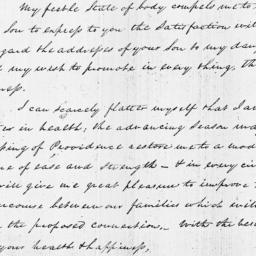 My feeble State of body compels me to
Son to express to you the Satisfaction wit
gard the addresses of your Son to my dau
my wish to promote in every thing, th
ness.
I can scarcely flatter myself that I a
in health, the advancing Season ma
sing of Providence restore me to a mod
e of ease and Strength — & in every cir
will give me great pleasure to improve t
ercourse between our families which wi
the proposed connection. With the bes
your health & happiness,